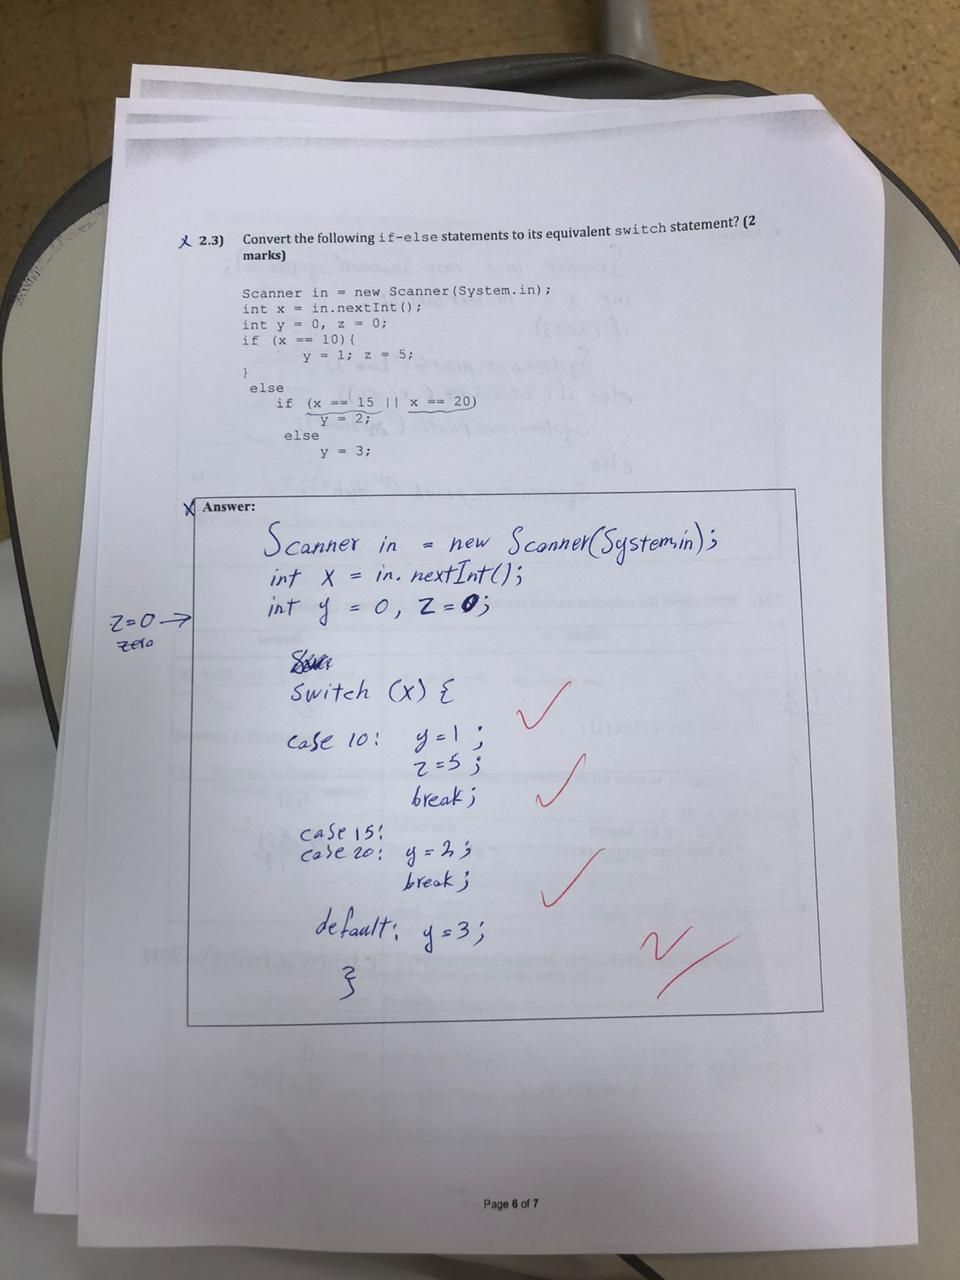 2.3) Convert the following if-else statements to its equivalent switch statement? (2
marks)
Scanner in = new Scanner(System.in);
int x = in.nextInt();
int y = 0, z = 0;
if (x == 10){
y = 1; z = 5;
}
else
if (x == 15 || x == 20)
y = 2;
else
y = 3;
Answer:
Scanner in = new Scanner(System.in);
int x = in.nextInt();
int y = 0, z = 0;
z=0 →
zero
switch (x) {
case 10: y=1;
z=5;
break;
case 15:
case 20: y=2;
break;
default: y=3;
}
2
Page 6 of 7